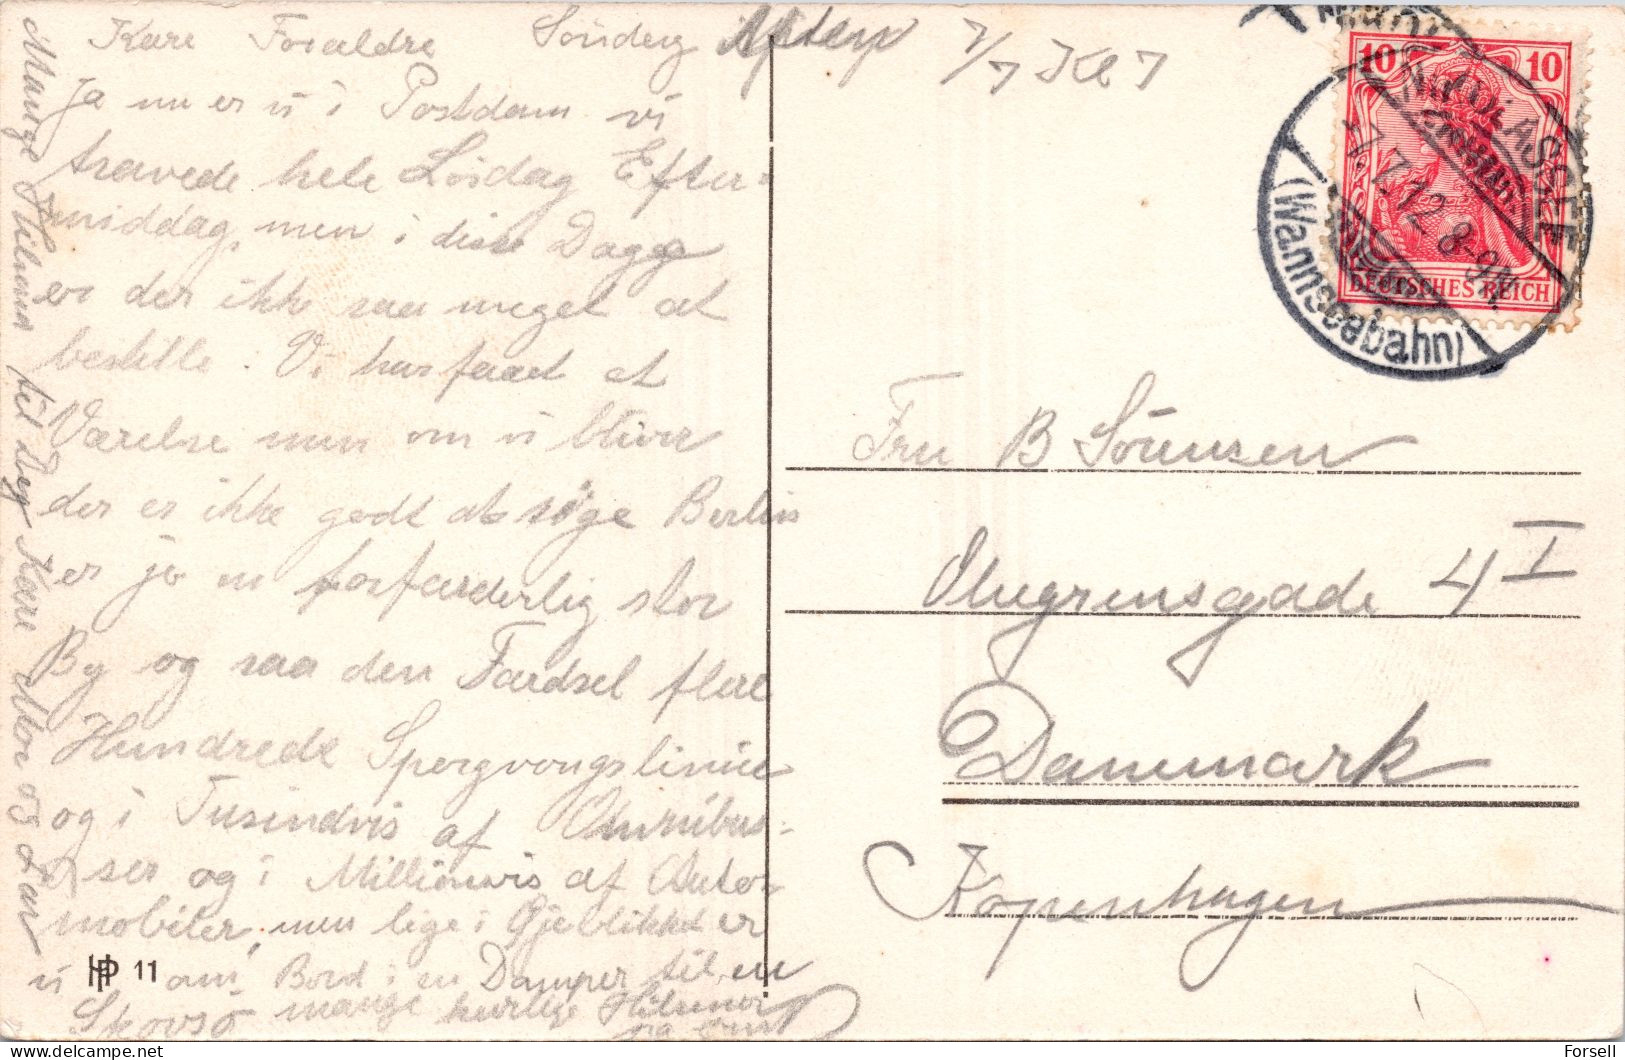 Kære Forældre Sönderg Aften 7/7 Kl 7
Ja nu er vi i Postdam vi
travede hele Lösdag Efter-
middag, men i disse Dage
er der ikke saa meget at
bestille. Vi har faaet et
Værelse men om vi bliver
der er ikke godt at sige Berlin
er jo en forfærderlig stor
By og saa den Færdsel flere
Hundrede Sporgvongslinier
og i Tusindvis af Omnibus-
ser og i Millionvis af Auto-
mobiler, men lige i Øjeblikket er
vi om Bord i en Damper til en
Skovsö mange kærlige Hilsner
Mange Hilsner til Dig Kære Mor og Far
HP 11
10 10
DEUTSCHES REICH
NIKOLASSEE
7.7.12. 8-9N.
(Wannseebahn)
Fru B Sörensen
4 I
Danemark
Kopenhagen
Forsell